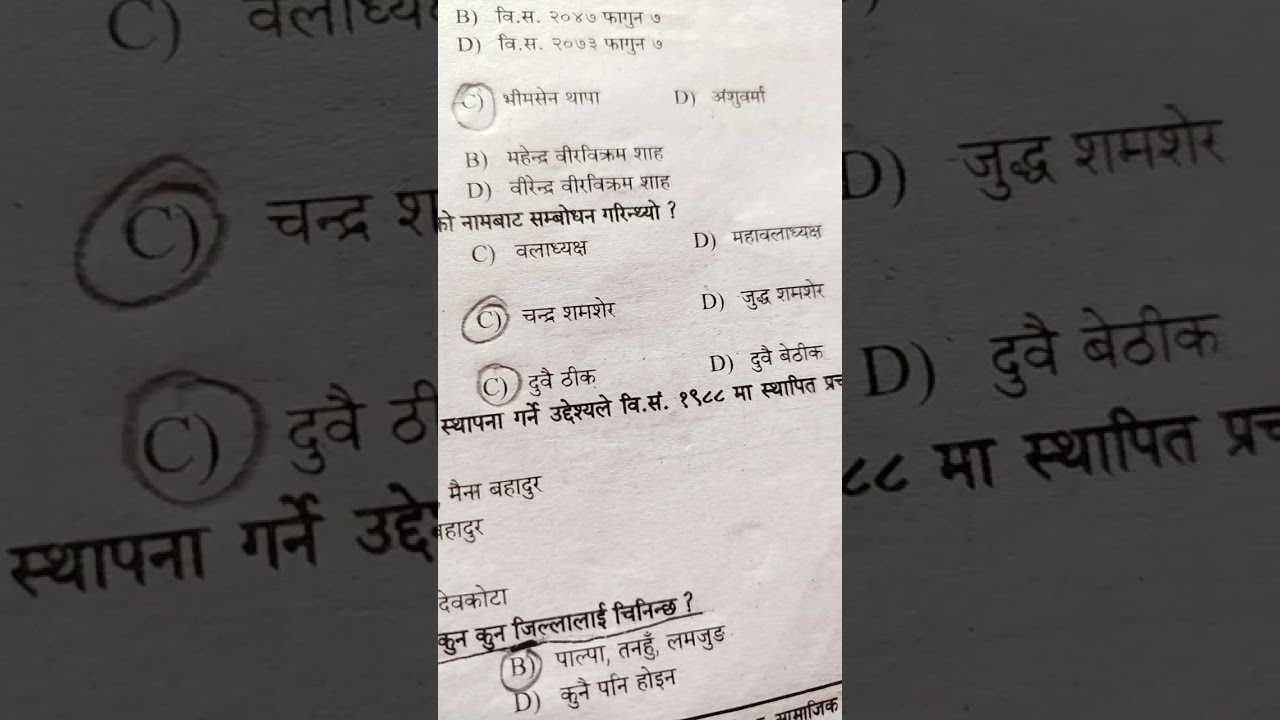 B) वि.स. २०४७ फागुन ७
D) वि.स. २०७३ फागुन ७
C) भीमसेन थापा D) अंशुवर्मा
B) महेन्द्र वीरविक्रम शाह
D) वीरेन्द्र वीरविक्रम शाह
को नामबाट सम्बोधन गरिन्थ्यो ?
C) वलाध्यक्ष D) महावलाध्यक्ष
C) चन्द्र शमशेर D) जुद्ध शमशेर
C) दुवै ठीक D) दुवै बेठीक
स्थापना गर्ने उद्देश्यले वि.सं. १९८८ मा स्थापित प्रच
मैना बहादुर
बहादुर
देवकोटा
कुन कुन जिल्लालाई चिनिन्छ ?
B) पाल्पा, तनहुँ, लमजुङ
D) कुनै पनि होइन
सामाजिक